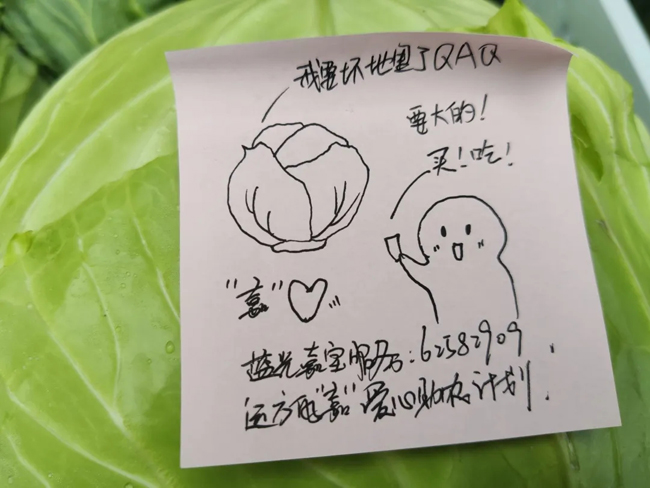 我要坏地里了QAQ
要大的！
买！吃！
"嘉"♡
蓝光嘉宝服务：62582909
远方的"嘉"爱心助农计划.